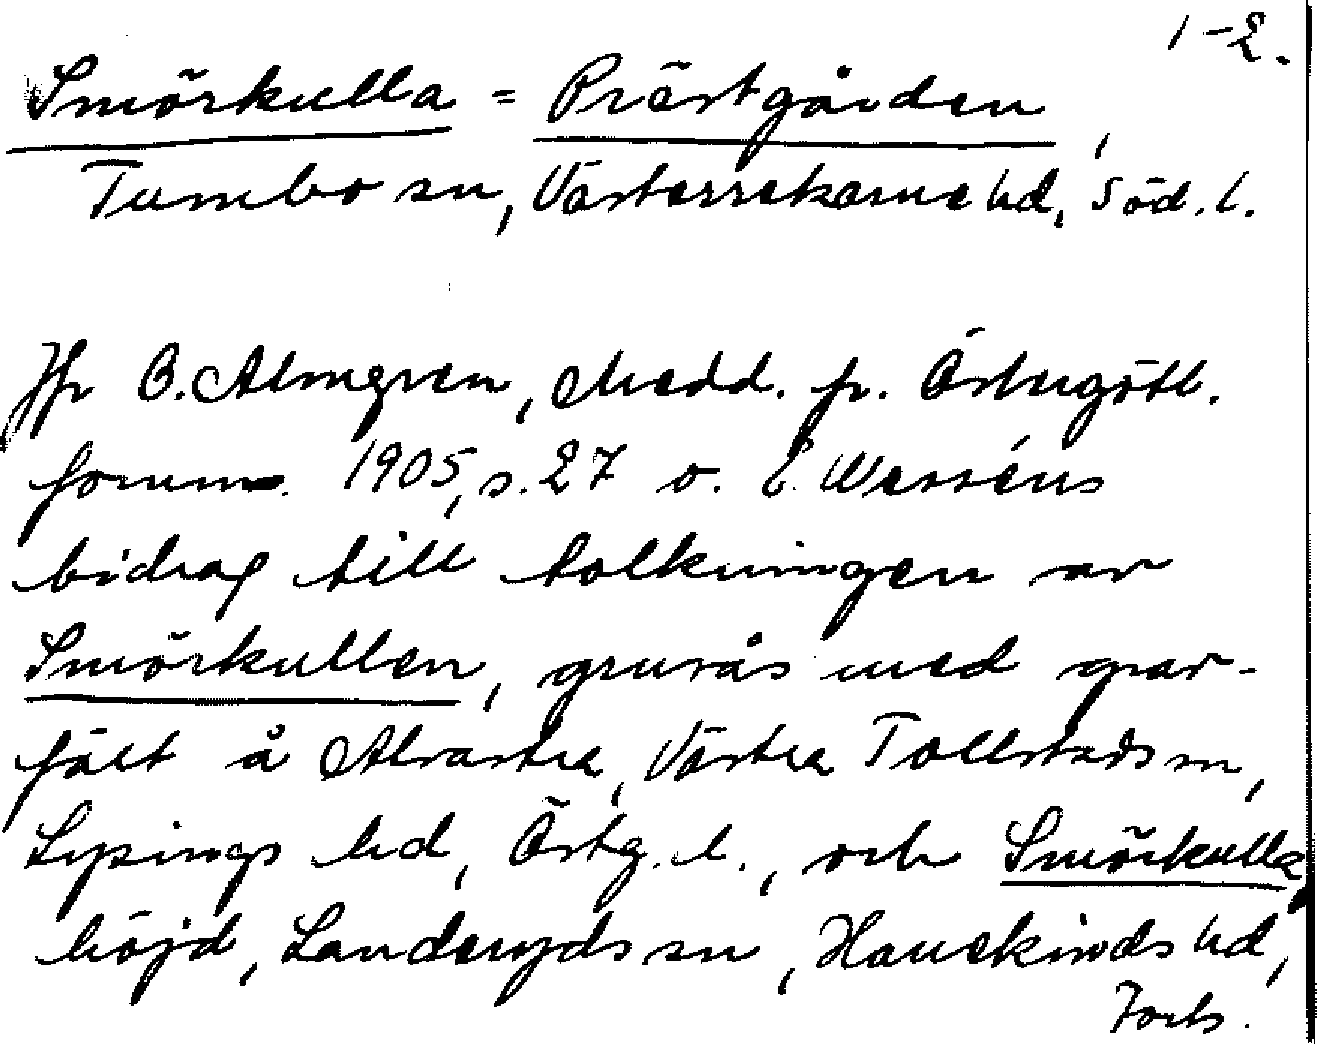 1-2.
Smörkulla = Prästgården,
Tumbo sn, Västerrekarne hd, Söd. l.
Jfr O. Almgren, Medd. fr. Östergötl.
fornm. 1905, s. 27 o. E. Wesséns
bidrag till tolkningen av
Smörkullen, grusås med grav-
fält å Alvastra, Västra Tollstads sn,
Lysings hd, Östg. l., och Smörkulla,
höjd, Landeryds sn, Hanekinds hd,
Forts.